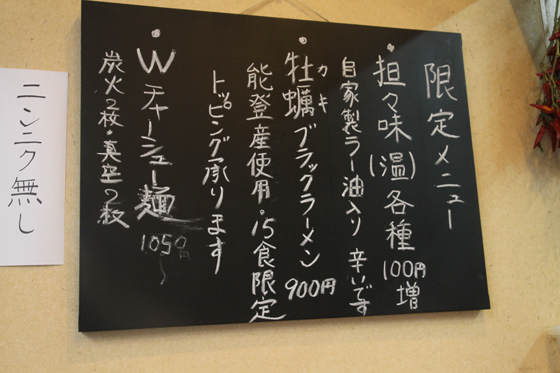 限定メニュー
・担々味(温)各種100円増
自家製ラー油入り 辛いです
・牡蠣カキブラックラーメン 900円
能登産使用・15食限定
トッピング承ります
・Wチャーシュー麺 1050円〜
炭火2枚・真空2枚
ニンニク無し